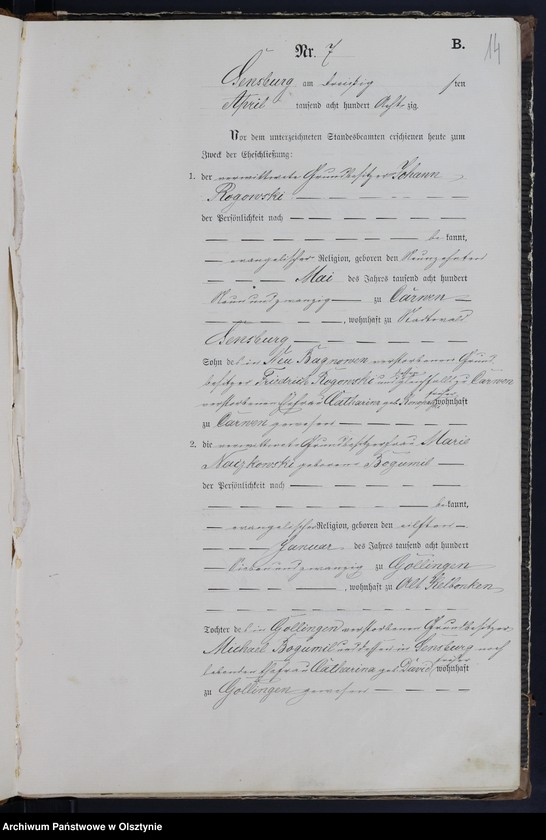 14
B.
Nr. 7
Sensburg am dreißigsten
April tausend acht hundert Achtzig.
Vor dem unterzeichneten Standesbeamten erschienen heute zum
Zweck der Eheschließung:
1. der verwittwete Grundbesitzer Johann
Rogowski
der Persönlichkeit nach
bekannt,
evangelischer Religion, geboren den Neunzehnten
Mai des Jahrs tausend acht hundert
Neun und zwanzig zu Carwen
, wohnhaft zu Stadtwald
Sensburg
Sohn des in Neu Bagnowen verstorbenen Grund
besitzer Friedrich Rogowski und gleichfalls zu Carwen
verstorbenen Ehefrau Catharina geb. wohnhaft
zu Carwen gewesen
2. die verwittwete Grundbesitzerfrau Marie
Naczkowski geborene Bogumil
der Persönlichkeit nach
bekannt,
evangelischer Religion, geboren den eilften
Januar des Jahrs tausend acht hundert
Sieben und zwanzig zu Gollingen
, wohnhaft zu Alt Kelbonken
Tochter des in Gollingen verstorbenen Grundbesitzer
Michael Bogumil und dessen in Sensburg noch
lebenden Ehefrau Catharina geb. David, früher wohnhaft
zu Gollingen gewesen
Archiwum Państwowe w Olsztynie